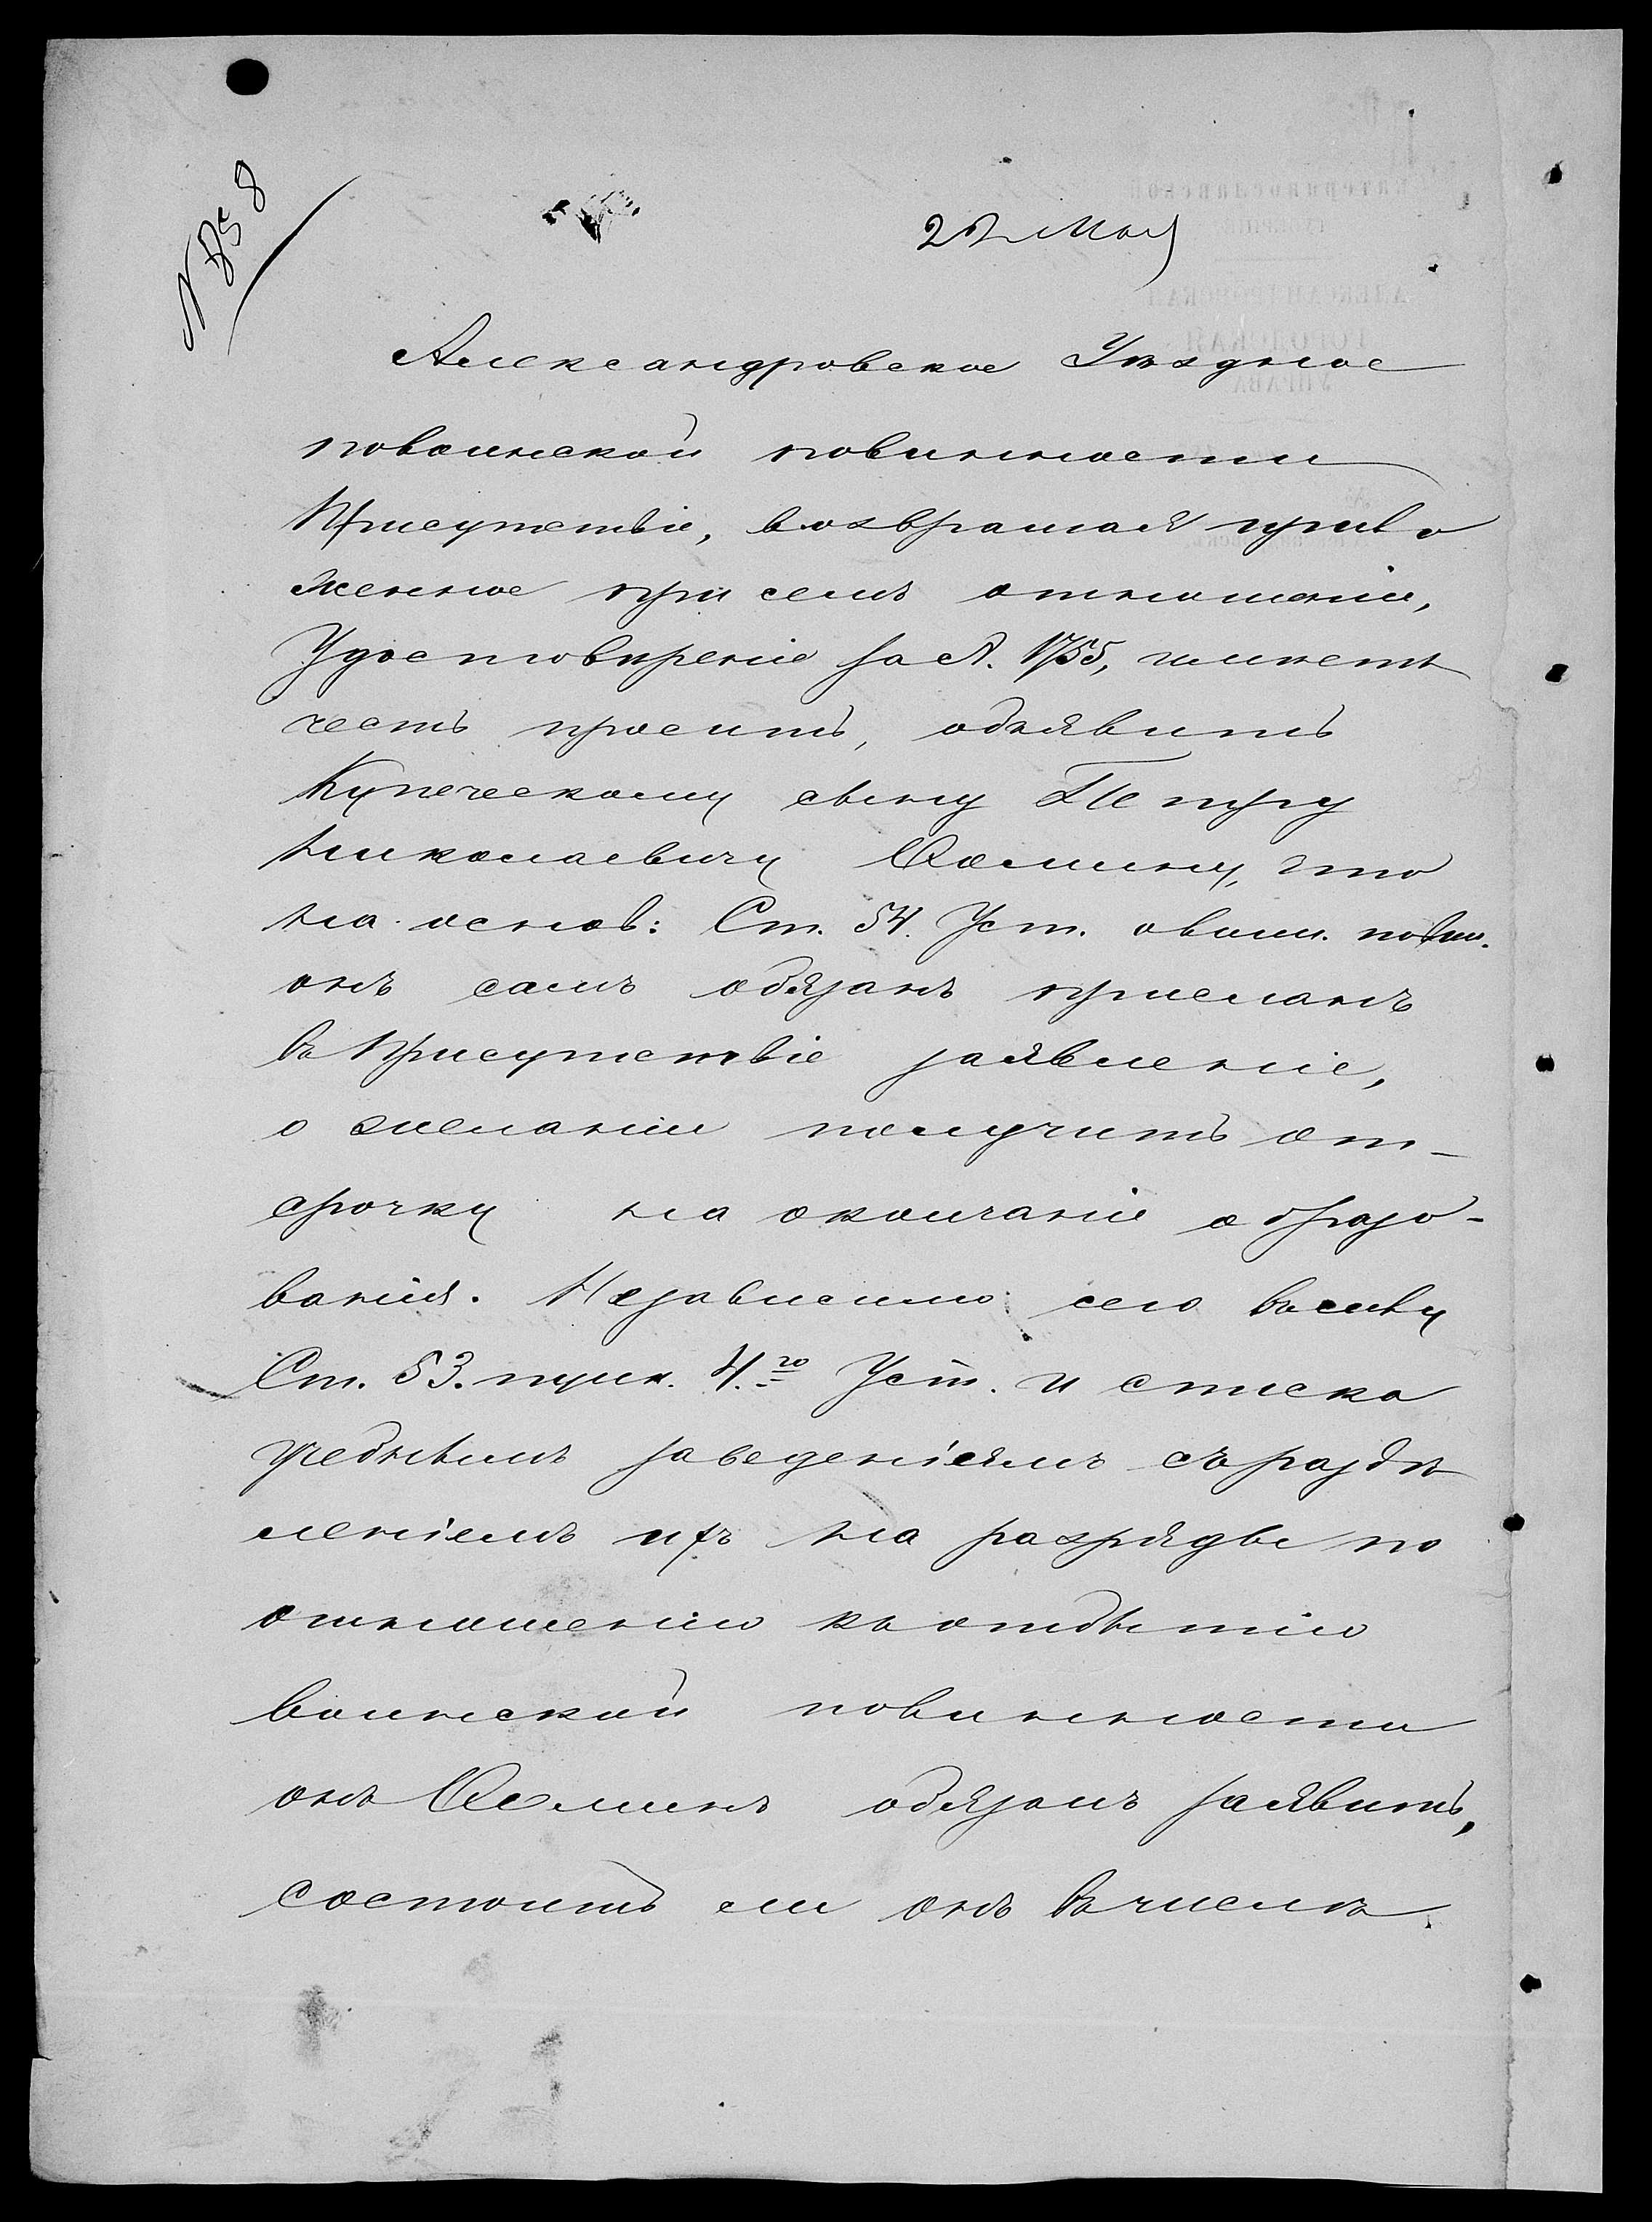 N 858
22 Мая
Александровское Уѣздное
повоинской повинности
Присутствіе, возвращая прило
женное при семъ отношеніи,
Удостовѣреніе за N. 1755, имѣетъ
честь просить, объявить
Купеческому сыну Петру
Николаевичу Фомину, что
на основ: Ст. 54. Уст. овоин. повин.
онъ самъ обязанъ прислать
въ Присутствіе заявленіе,
о желаніи получить от-
срочку на окончаніе образо-
ванія. Независимо сего въ силу
Ст. 53. пунк. 4.го Уст. и списка
учебнымъ заведеніямъ съ раздѣ
леніемъ ихъ на разряды по
отношенію къ отбытію
воинской повинности
онъ Фоминъ обязанъ заявить,
состоитъ ли онъ въ числѣ